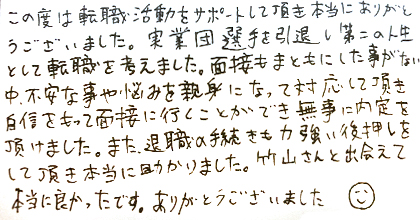 この度は転職活動をサポートして頂き本当にありがと
うございました。実業団選手を引退し第二の人生
として転職を考えました。面接もまともにした事がない
中、不安な事や悩みを親身になって対応して頂き
自信をもって面接に行くことができ無事に内定を
頂けました。また、退職の手続きも力強い後押しを
して頂き本当に助かりました。竹山さんと出会えて
本当に良かったです。ありがとうございました